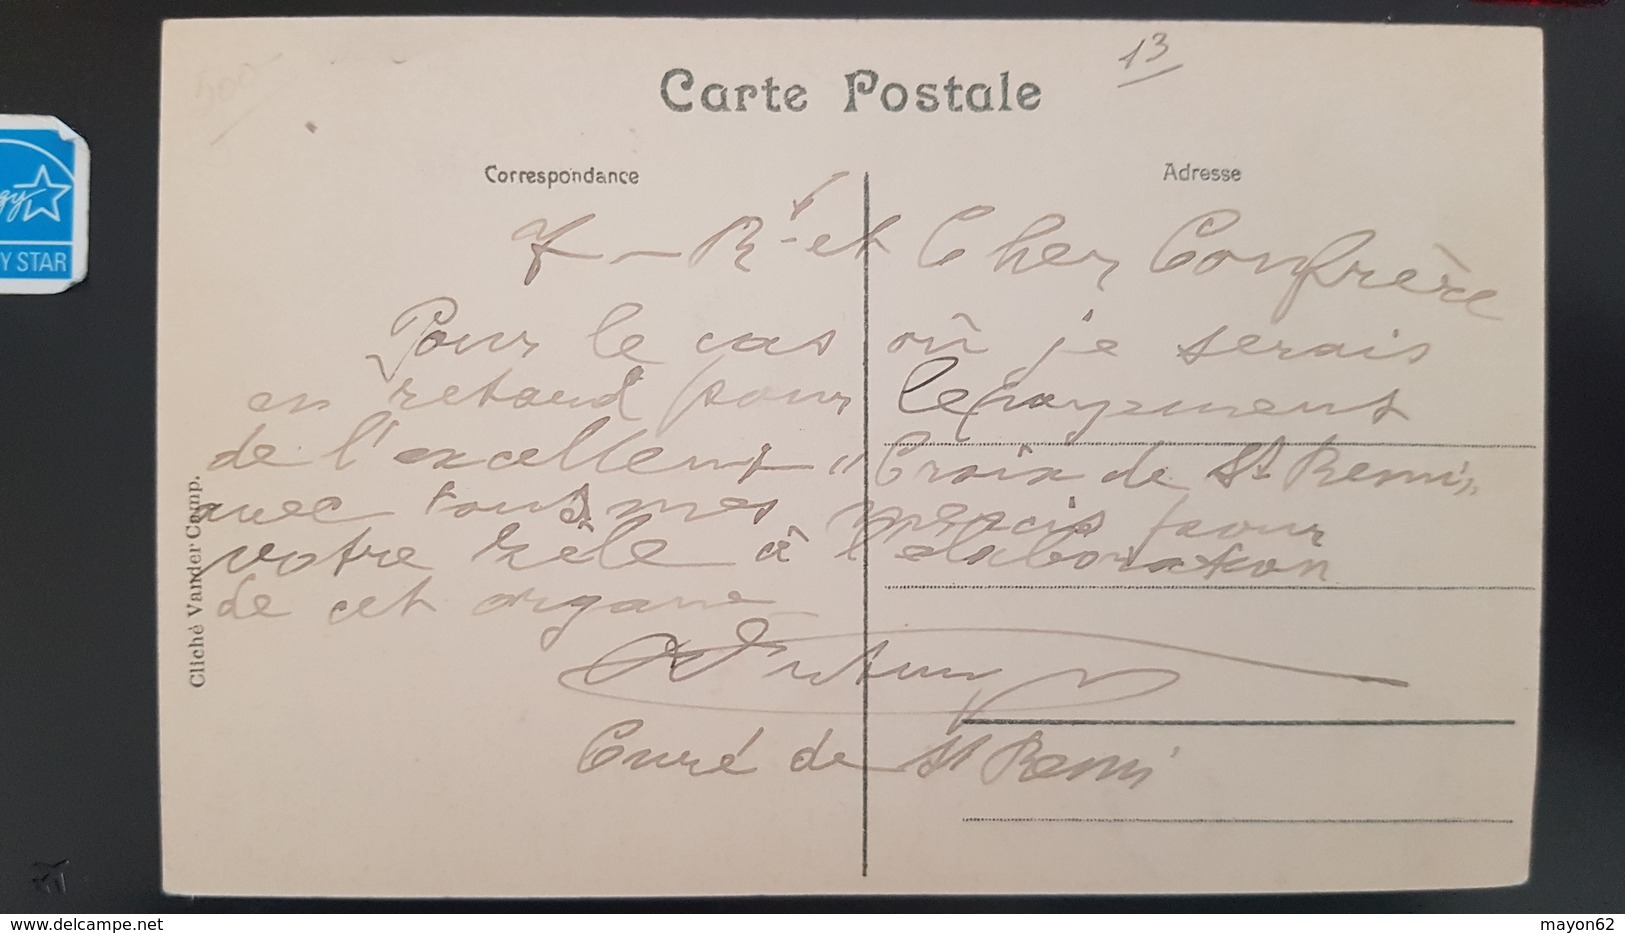 13
Carte Postale
Correspondance
Adresse
et Cher Confrère
Pour le cas où je serais
en retard pour le payement
de l'excellent "Croix de St Remi"
avec tous mes mercis pour
votre zèle à l'elaboration
de cet organe
Curé de St Remi
Cliché Vander Comp.
gy
Y STAR
www.delcampe.net
mayon62